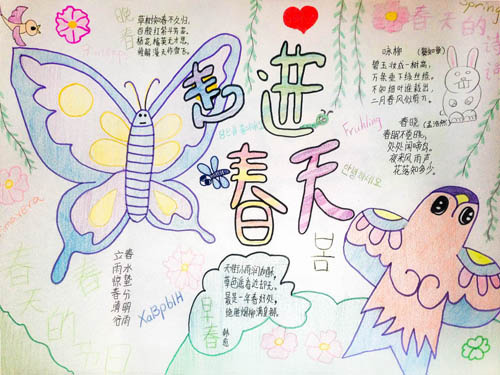 晚春
草树知春不久归,
百般红紫斗芳菲。
杨花榆荚无才思,
惟解漫天作雪飞。
走进
春天
Spring
春天的
咏柳 (贺知章)
碧玉妆成一树高,
万条垂下绿丝绦。
不知细叶谁裁出,
二月春风似剪刀。
春晓 (孟浩然)
春眠不觉晓,
处处闻啼鸟。
夜来风雨声,
花落知多少。
Fruhling
안녕하세요
立春
雨水
惊蛰
春分
清明
谷雨
春
的
早春
韩愈
天街小雨润如酥,
草色遥看近却无。
最是一年春好处,
绝胜烟柳满皇都。